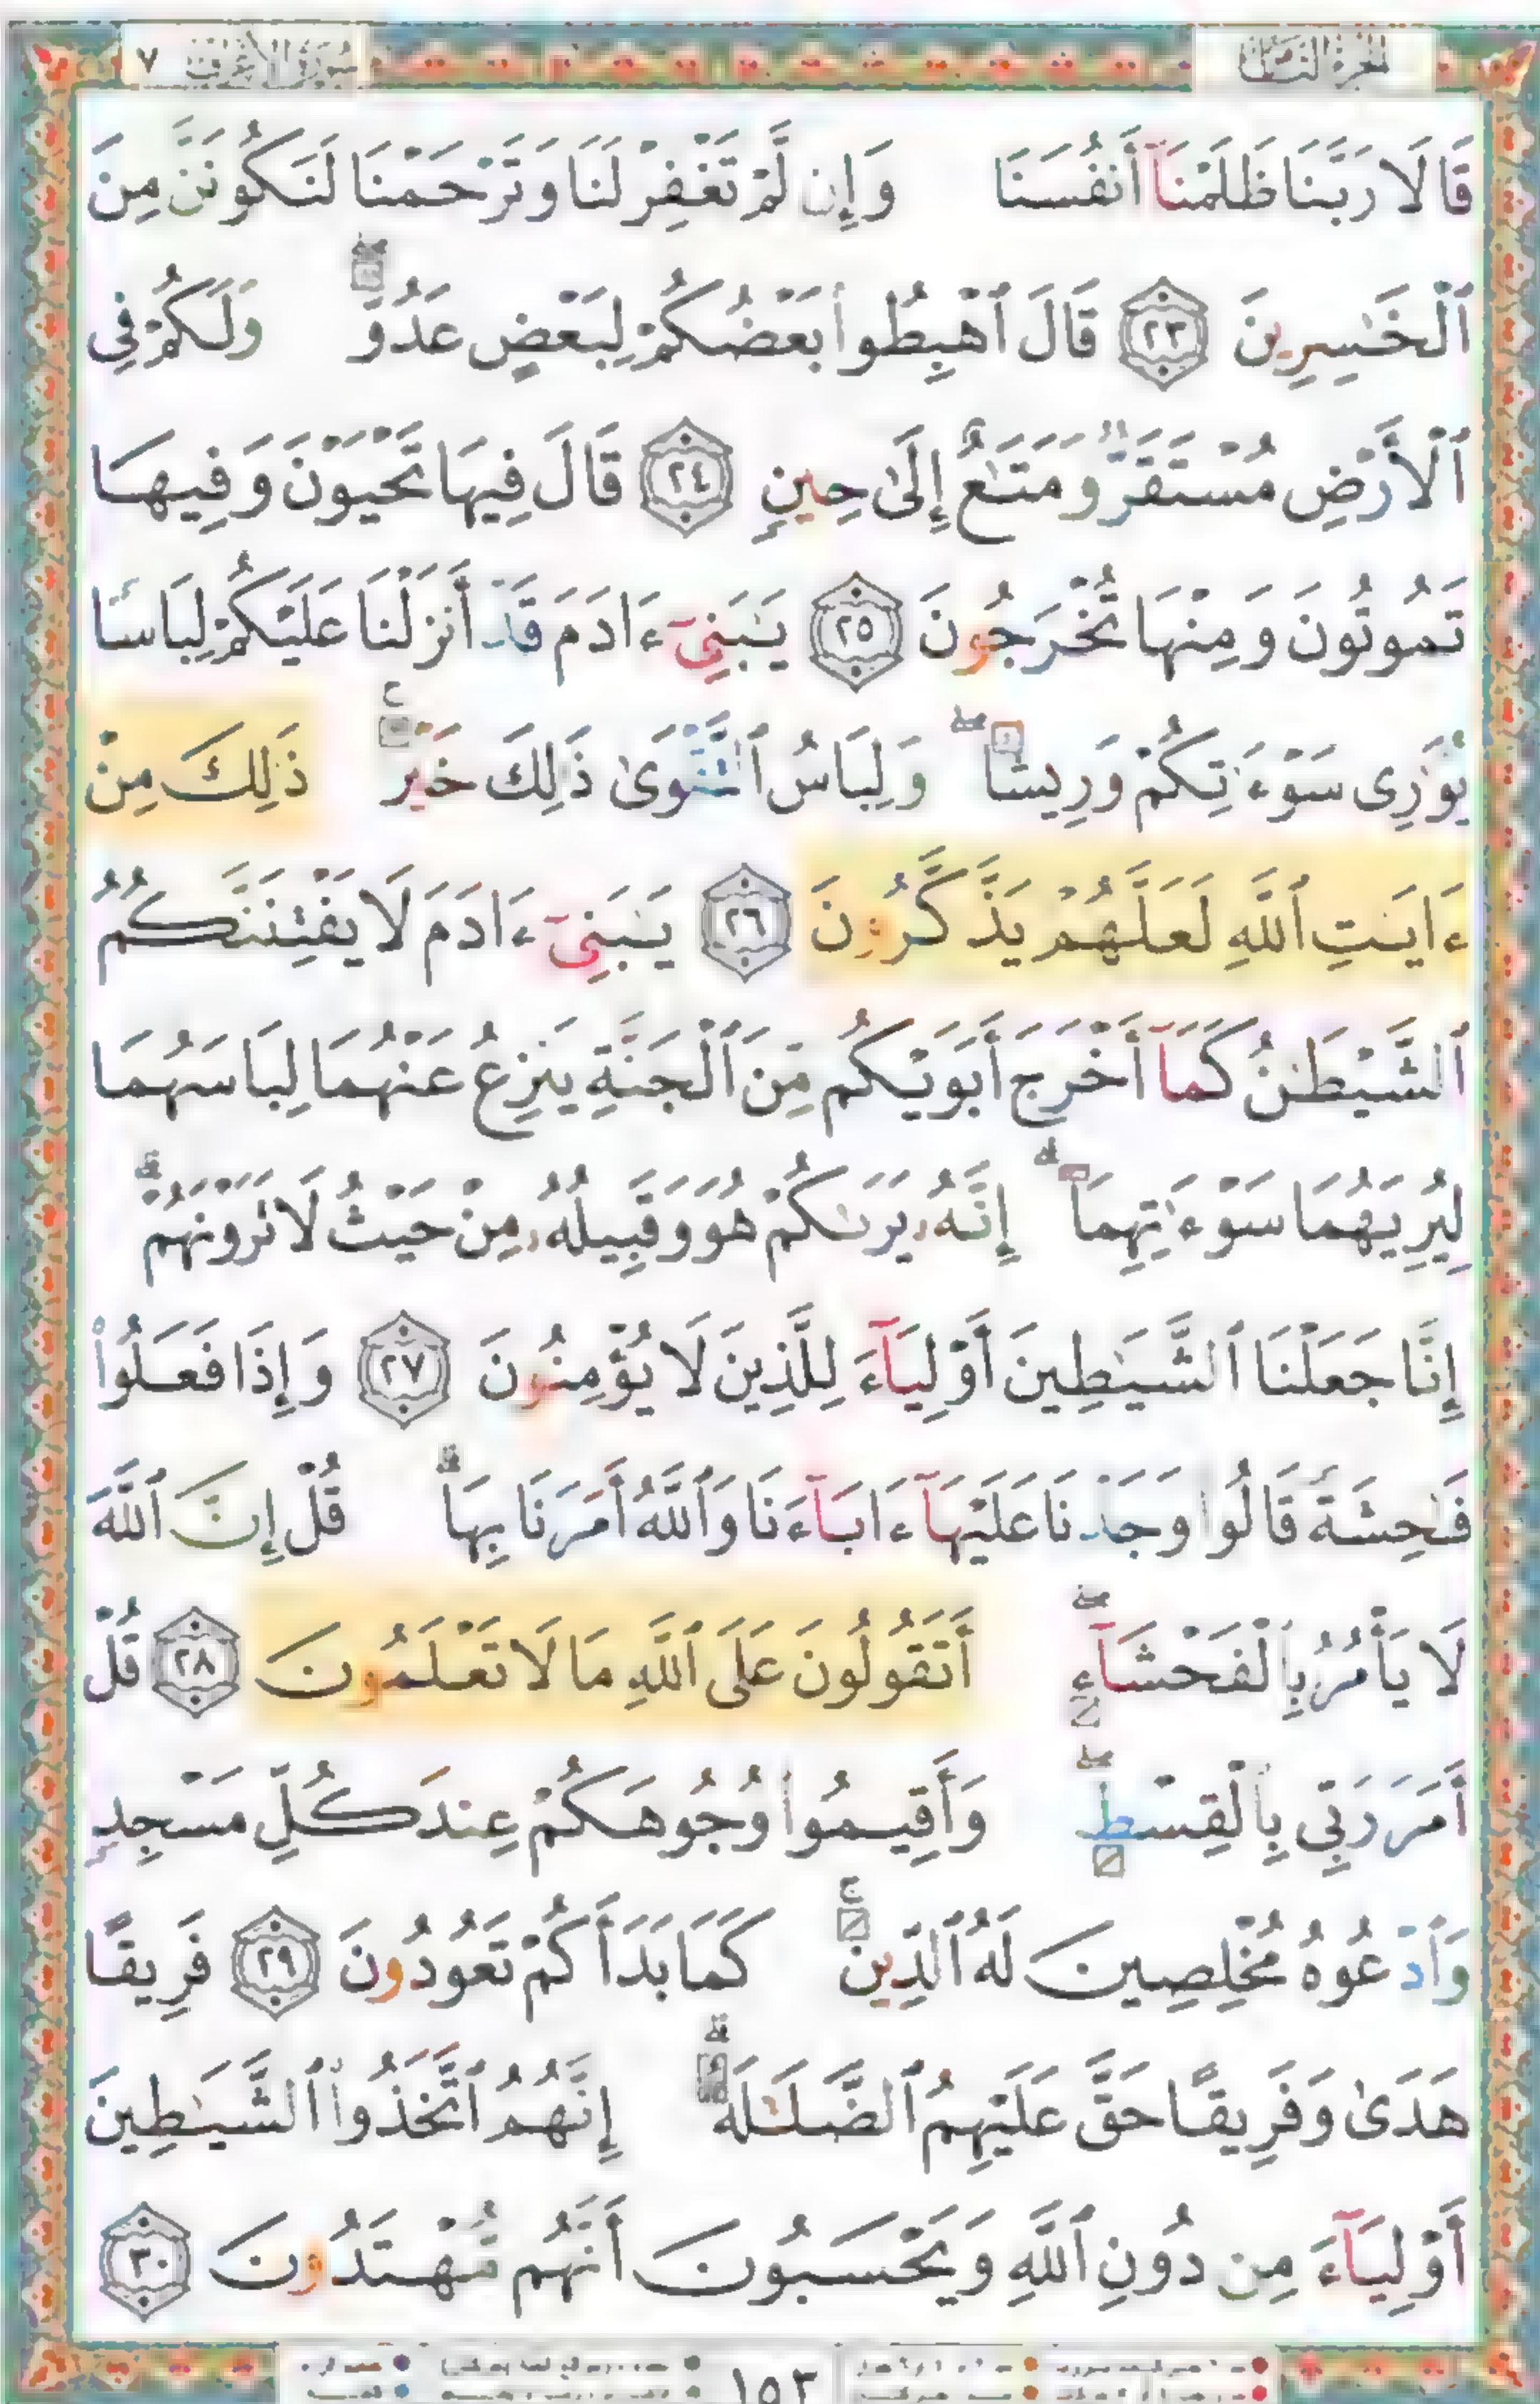 سورة الأعراف ٧
الجزء الثامن
قَالَا رَبَّنَا ظَلَمْنَآ أَنفُسَنَا وَإِن لَّمْ تَغْفِرْ لَنَا وَتَرْحَمْنَا لَنَكُونَنَّ مِنَ
ٱلْخَٰسِرِينَ ٢٣ قَالَ ٱهْبِطُوا۟ بَعْضُكُمْ لِبَعْضٍ عَدُوٌّ ۖ وَلَكُمْ فِى
ٱلْأَرْضِ مُسْتَقَرٌّ وَمَتَٰعٌ إِلَىٰ حِينٍ ٢٤ قَالَ فِيهَا تَحْيَوْنَ وَفِيهَا
تَمُوتُونَ وَمِنْهَا تُخْرَجُونَ ٢٥ يَٰبَنِىٓ ءَادَمَ قَدْ أَنزَلْنَا عَلَيْكُمْ لِبَاسًا
يُوَٰرِى سَوْءَٰتِكُمْ وَرِيشًا ۖ وَلِبَاسُ ٱلتَّقْوَىٰ ذَٰلِكَ خَيْرٌ ۚ ذَٰلِكَ مِنْ
ءَايَٰتِ ٱللَّهِ لَعَلَّهُمْ يَذَّكَّرُونَ ٢٦ يَٰبَنِىٓ ءَادَمَ لَا يَفْتِنَنَّكُمُ
ٱلشَّيْطَٰنُ كَمَآ أَخْرَجَ أَبَوَيْكُم مِّنَ ٱلْجَنَّةِ يَنزِعُ عَنْهُمَا لِبَاسَهُمَا
لِيُرِيَهُمَا سَوْءَٰتِهِمَآ ۗ إِنَّهُۥ يَرَىٰكُمْ هُوَ وَقَبِيلُهُۥ مِنْ حَيْثُ لَا تَرَوْنَهُمْ ۗ
إِنَّا جَعَلْنَا ٱلشَّيَٰطِينَ أَوْلِيَآءَ لِلَّذِينَ لَا يُؤْمِنُونَ ٢٧ وَإِذَا فَعَلُوا۟
فَٰحِشَةً قَالُوا۟ وَجَدْنَا عَلَيْهَآ ءَابَآءَنَا وَٱللَّهُ أَمَرَنَا بِهَا ۗ قُلْ إِنَّ ٱللَّهَ
لَا يَأْمُرُ بِٱلْفَحْشَآءِ ۖ أَتَقُولُونَ عَلَى ٱللَّهِ مَا لَا تَعْلَمُونَ ٢٨ قُلْ
أَمَرَ رَبِّى بِٱلْقِسْطِ ۖ وَأَقِيمُوا۟ وُجُوهَكُمْ عِندَ كُلِّ مَسْجِدٍ
وَٱدْعُوهُ مُخْلِصِينَ لَهُ ٱلدِّينَ ۚ كَمَا بَدَأَكُمْ تَعُودُونَ ٢٩ فَرِيقًا
هَدَىٰ وَفَرِيقًا حَقَّ عَلَيْهِمُ ٱلضَّلَٰلَةُ ۗ إِنَّهُمُ ٱتَّخَذُوا۟ ٱلشَّيَٰطِينَ
أَوْلِيَآءَ مِن دُونِ ٱللَّهِ وَيَحْسَبُونَ أَنَّهُم مُّهْتَدُونَ ٣٠
١٥٣